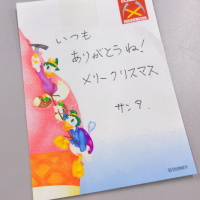 いつも
ありがとうね!
メリークリスマス
サンタ